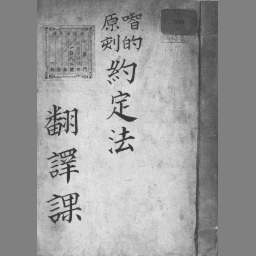 喈的
原刻
約定法
翻譯課